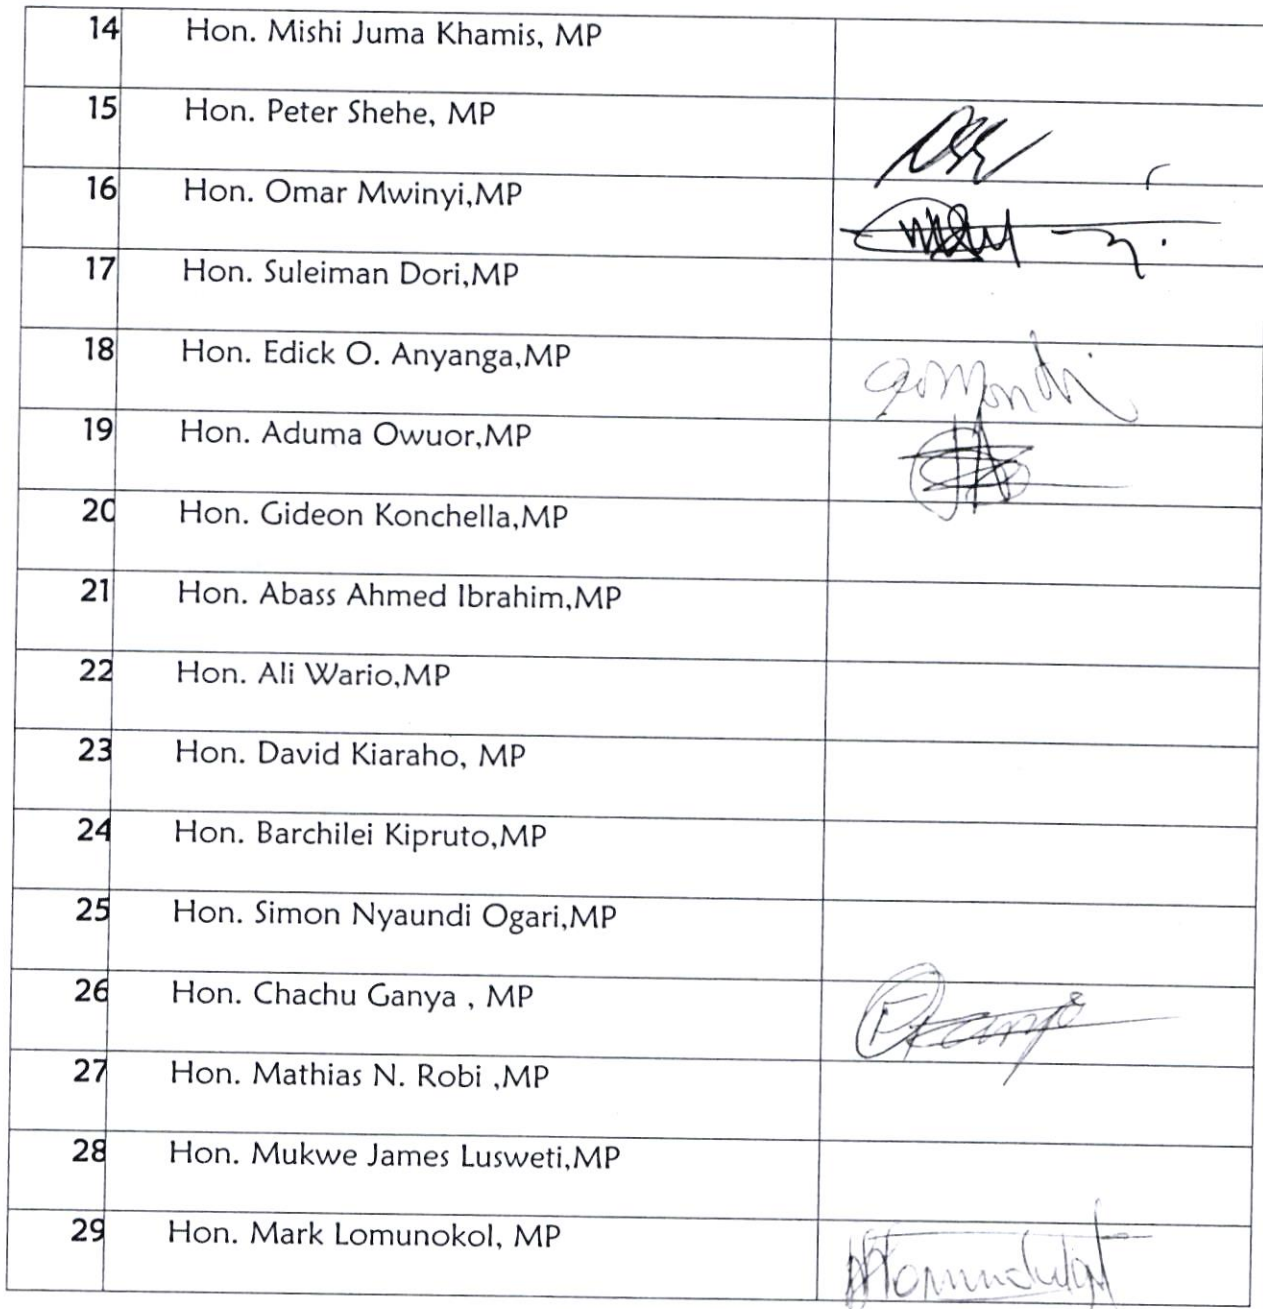 14 Hon. Mishi Juma Khamis, MP
15 Hon. Peter Shehe, MP
16 Hon. Omar Mwinyi,MP
17 Hon. Suleiman Dori,MP
18 Hon. Edick O. Anyanga,MP
19 Hon. Aduma Owuor,MP
20 Hon. Gideon Konchella,MP
21 Hon. Abass Ahmed Ibrahim,MP
22 Hon. Ali Wario,MP
23 Hon. David Kiaraho, MP
24 Hon. Barchilei Kipruto,MP
25 Hon. Simon Nyaundi Ogari,MP
26 Hon. Chachu Ganya , MP
27 Hon. Mathias N. Robi ,MP
28 Hon. Mukwe James Lusweti,MP
29 Hon. Mark Lomunokol, MP